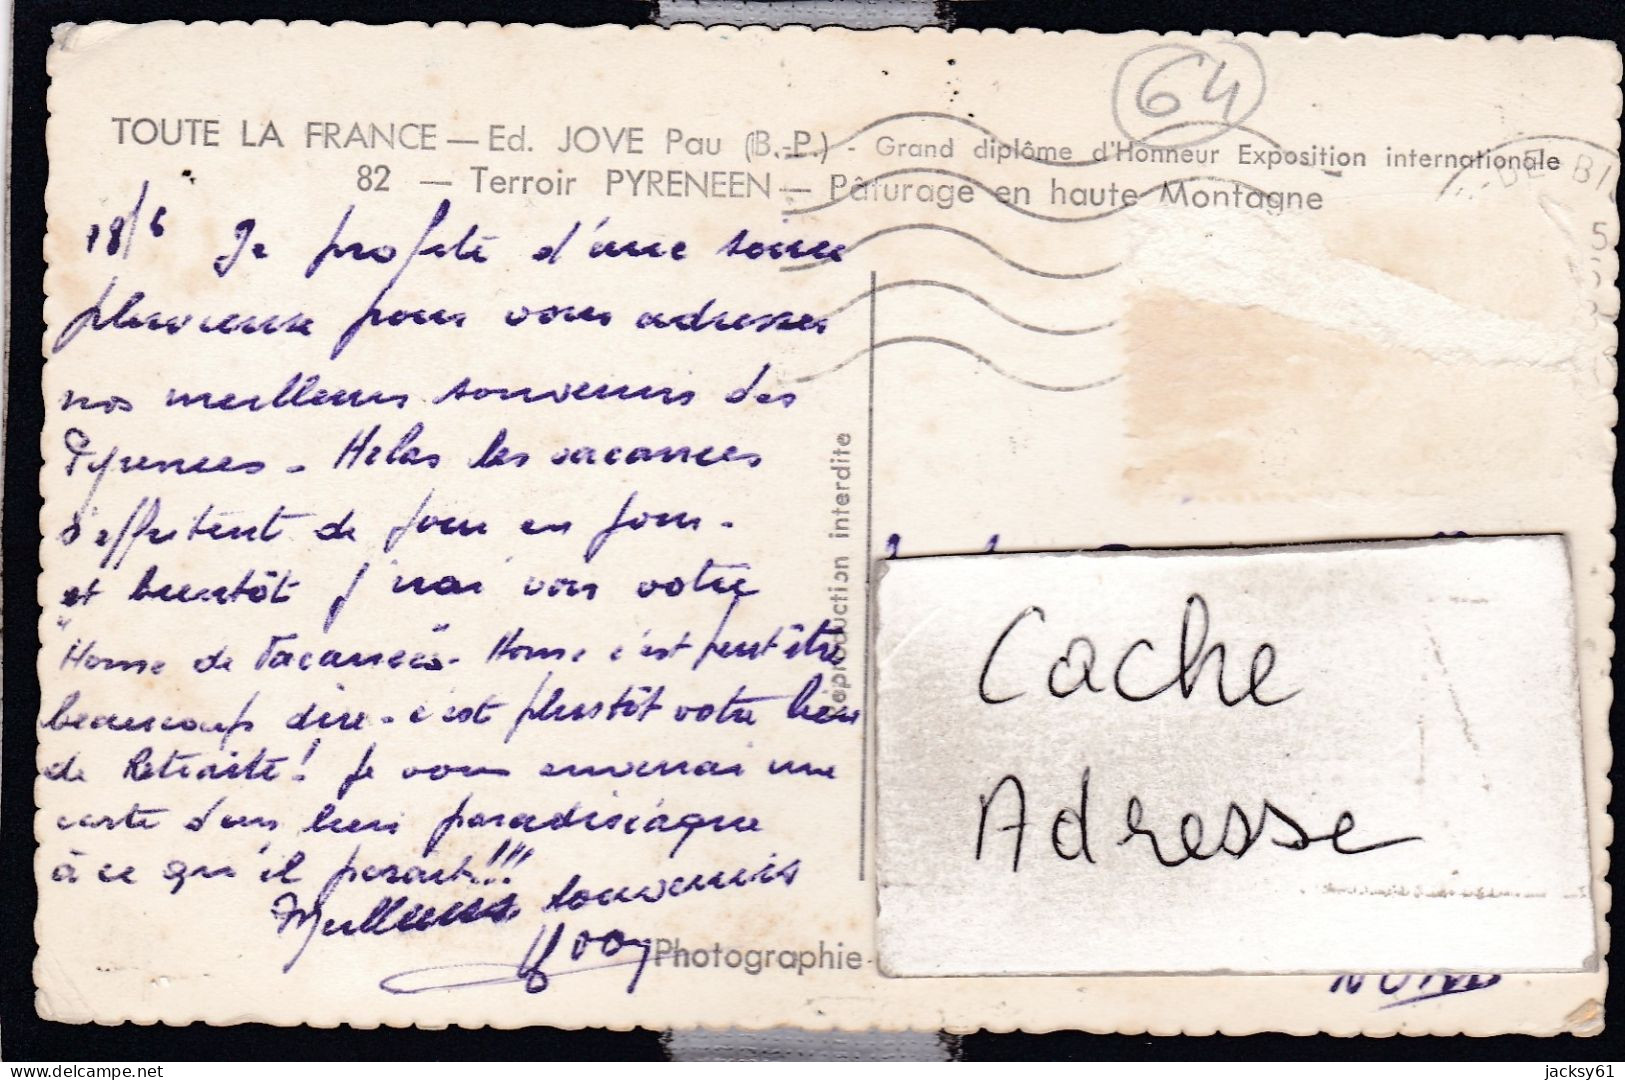 64
TOUTE LA FRANCE — Ed. JOVE Pau (B.-P.) - Grand diplôme d'Honneur Exposition internationale
82 — Terroir PYRENEEN — Pâturage en haute Montagne
18/6 Je profite d'une soirée
pluvieuse pour vous adresser
nos meilleurs souvenirs des
Pyrenees - Helas les vacances
s'effritent de jour en jour -
et bientôt j'irai voir votre
"Home de Vacances" - Home c'est peut être
beaucoup dire - c'est plutôt votre lieu
de Retraite! Je vous enverrai une
carte d'un lieu paradisiaque
à ce qu'il parait!!!
Meilleurs souvenirs
Reproduction interdite
Photographie
Cache
Adresse
jacksy61